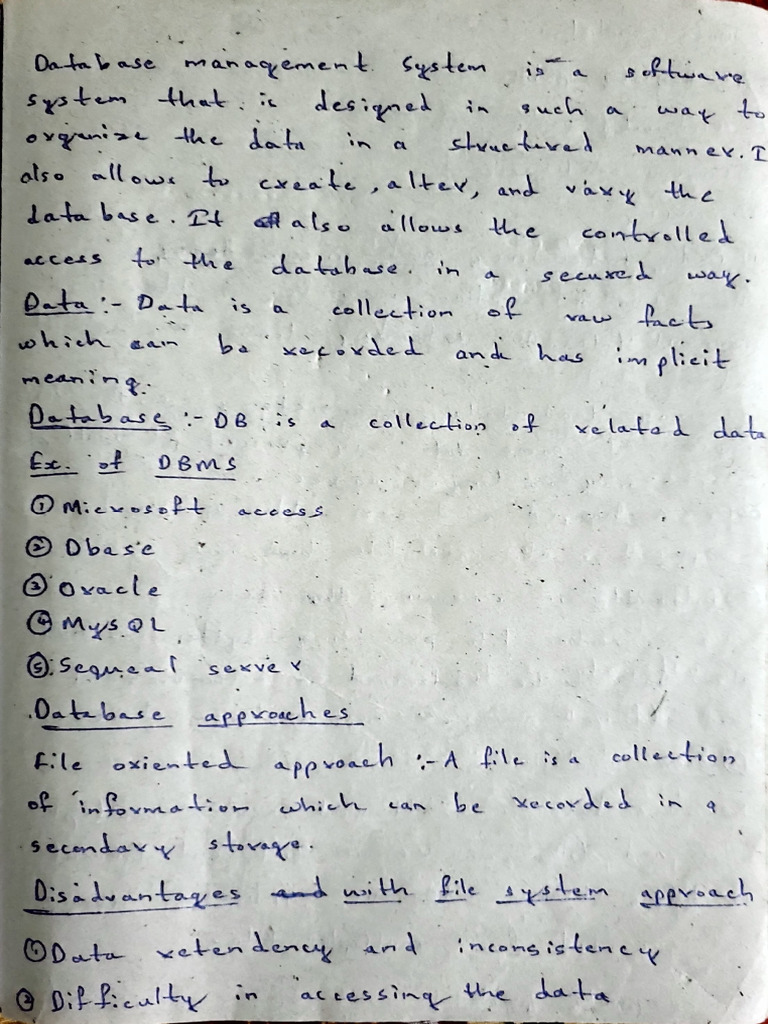 Database management system is a software
system that is designed in such a way to
organize the data in a structured manner. I
also allows to create, alter, and vary the
database. It also allows the controlled
access to the database. in a secured way.
Data :- Data is a collection of raw facts
which can be recorded and has implicit
meaning.
Database :- DB is a collection of related data
Ex. of DBMS
① Microsoft access
② Dbase
③ Oracle
④ MySQL
⑤ Sequeal server
Database approaches
File oriented approach :- A file is a collection
of information which can be recorded in a
secondary storage.
Disadvantages and with file system approach
① Data retendency and inconsistency
② Difficulty in accessing the data